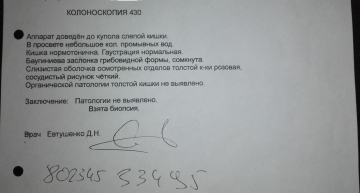 КОЛОНОСКОПИЯ 430
Аппарат доведён до купола слепой кишки.
В просвете небольшое кол. промывных вод.
Кишка нормотонична. Гаустрация нормальная.
Баугиниева заслонка грибовидной формы, сомкнута.
Слизистая оболочка осмотренных отделов толстой к-ки розовая,
сосудистый рисунок чёткий.
Органической патологии толстой кишки не выявлено.
Заключение: Патологии не выявлено.
Взята биопсия.
Врач Евтушенко Д.Н.
802345 53495